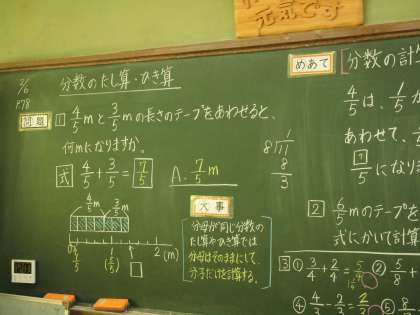 元気です
2/6
P.78
分数のたし算・ひき算
問題
1 4/5mと3/5mの長さのテープをあわせると、
何mになりますか。
式 4/5+3/5=7/5
A. 7/5m
4/5m 3/5m
0 1 2 (m)
大事
分母が同じ分数の
たし算やひき算では
分母はそのままにして、
分子だけを計算する。
8 11
8
3
めあて
分数の計
4/5は、1/5
あわせて、
7/5になりま
2 6/5mのテープを
式にかいて計算
3 ① 3/4+2/4=5/4
② 5/8+
④ 4/3-2/3=2/3
⑤